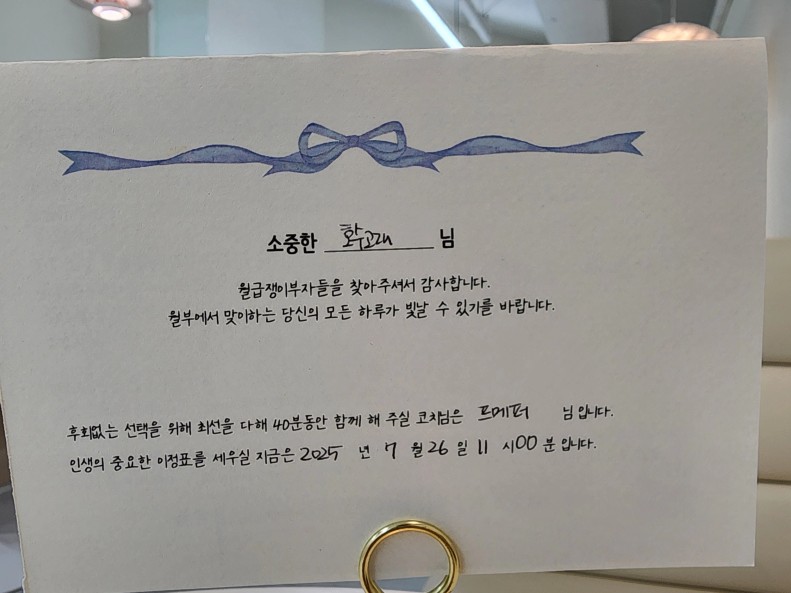 소중한 황금고래 님
월급쟁이부자들을 찾아주셔서 감사합니다.
월부에서 맞이하는 당신의 모든 하루가 빛날 수 있기를 바랍니다.
후회없는 선택을 위해 최선을 다해 40분동안 함께 해 주실 코치님은 프메퍼 님 입니다.
인생의 중요한 이정표를 세우실 지금은 2025 년 7 월 26 일 11 시 00 분 입니다.